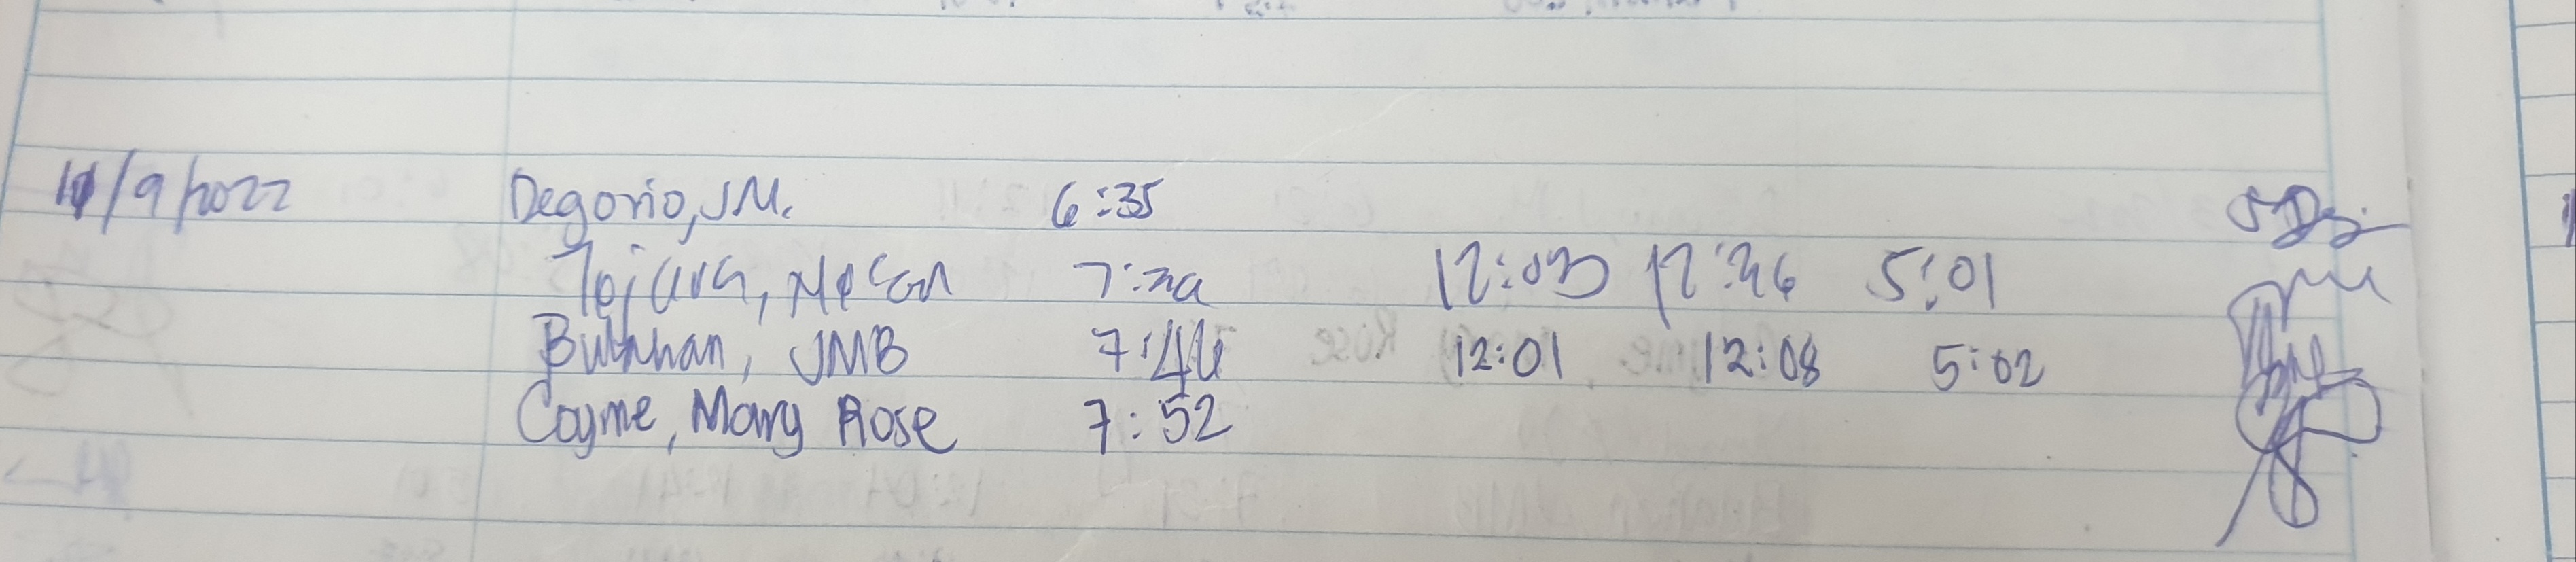 11/9/2022 Degorio, JM. 6:35
12:03 12:36 5:01
Bulahan, JMB 7:44 12:01 12:08 5:02
Coyme, Mary Rose 7:52